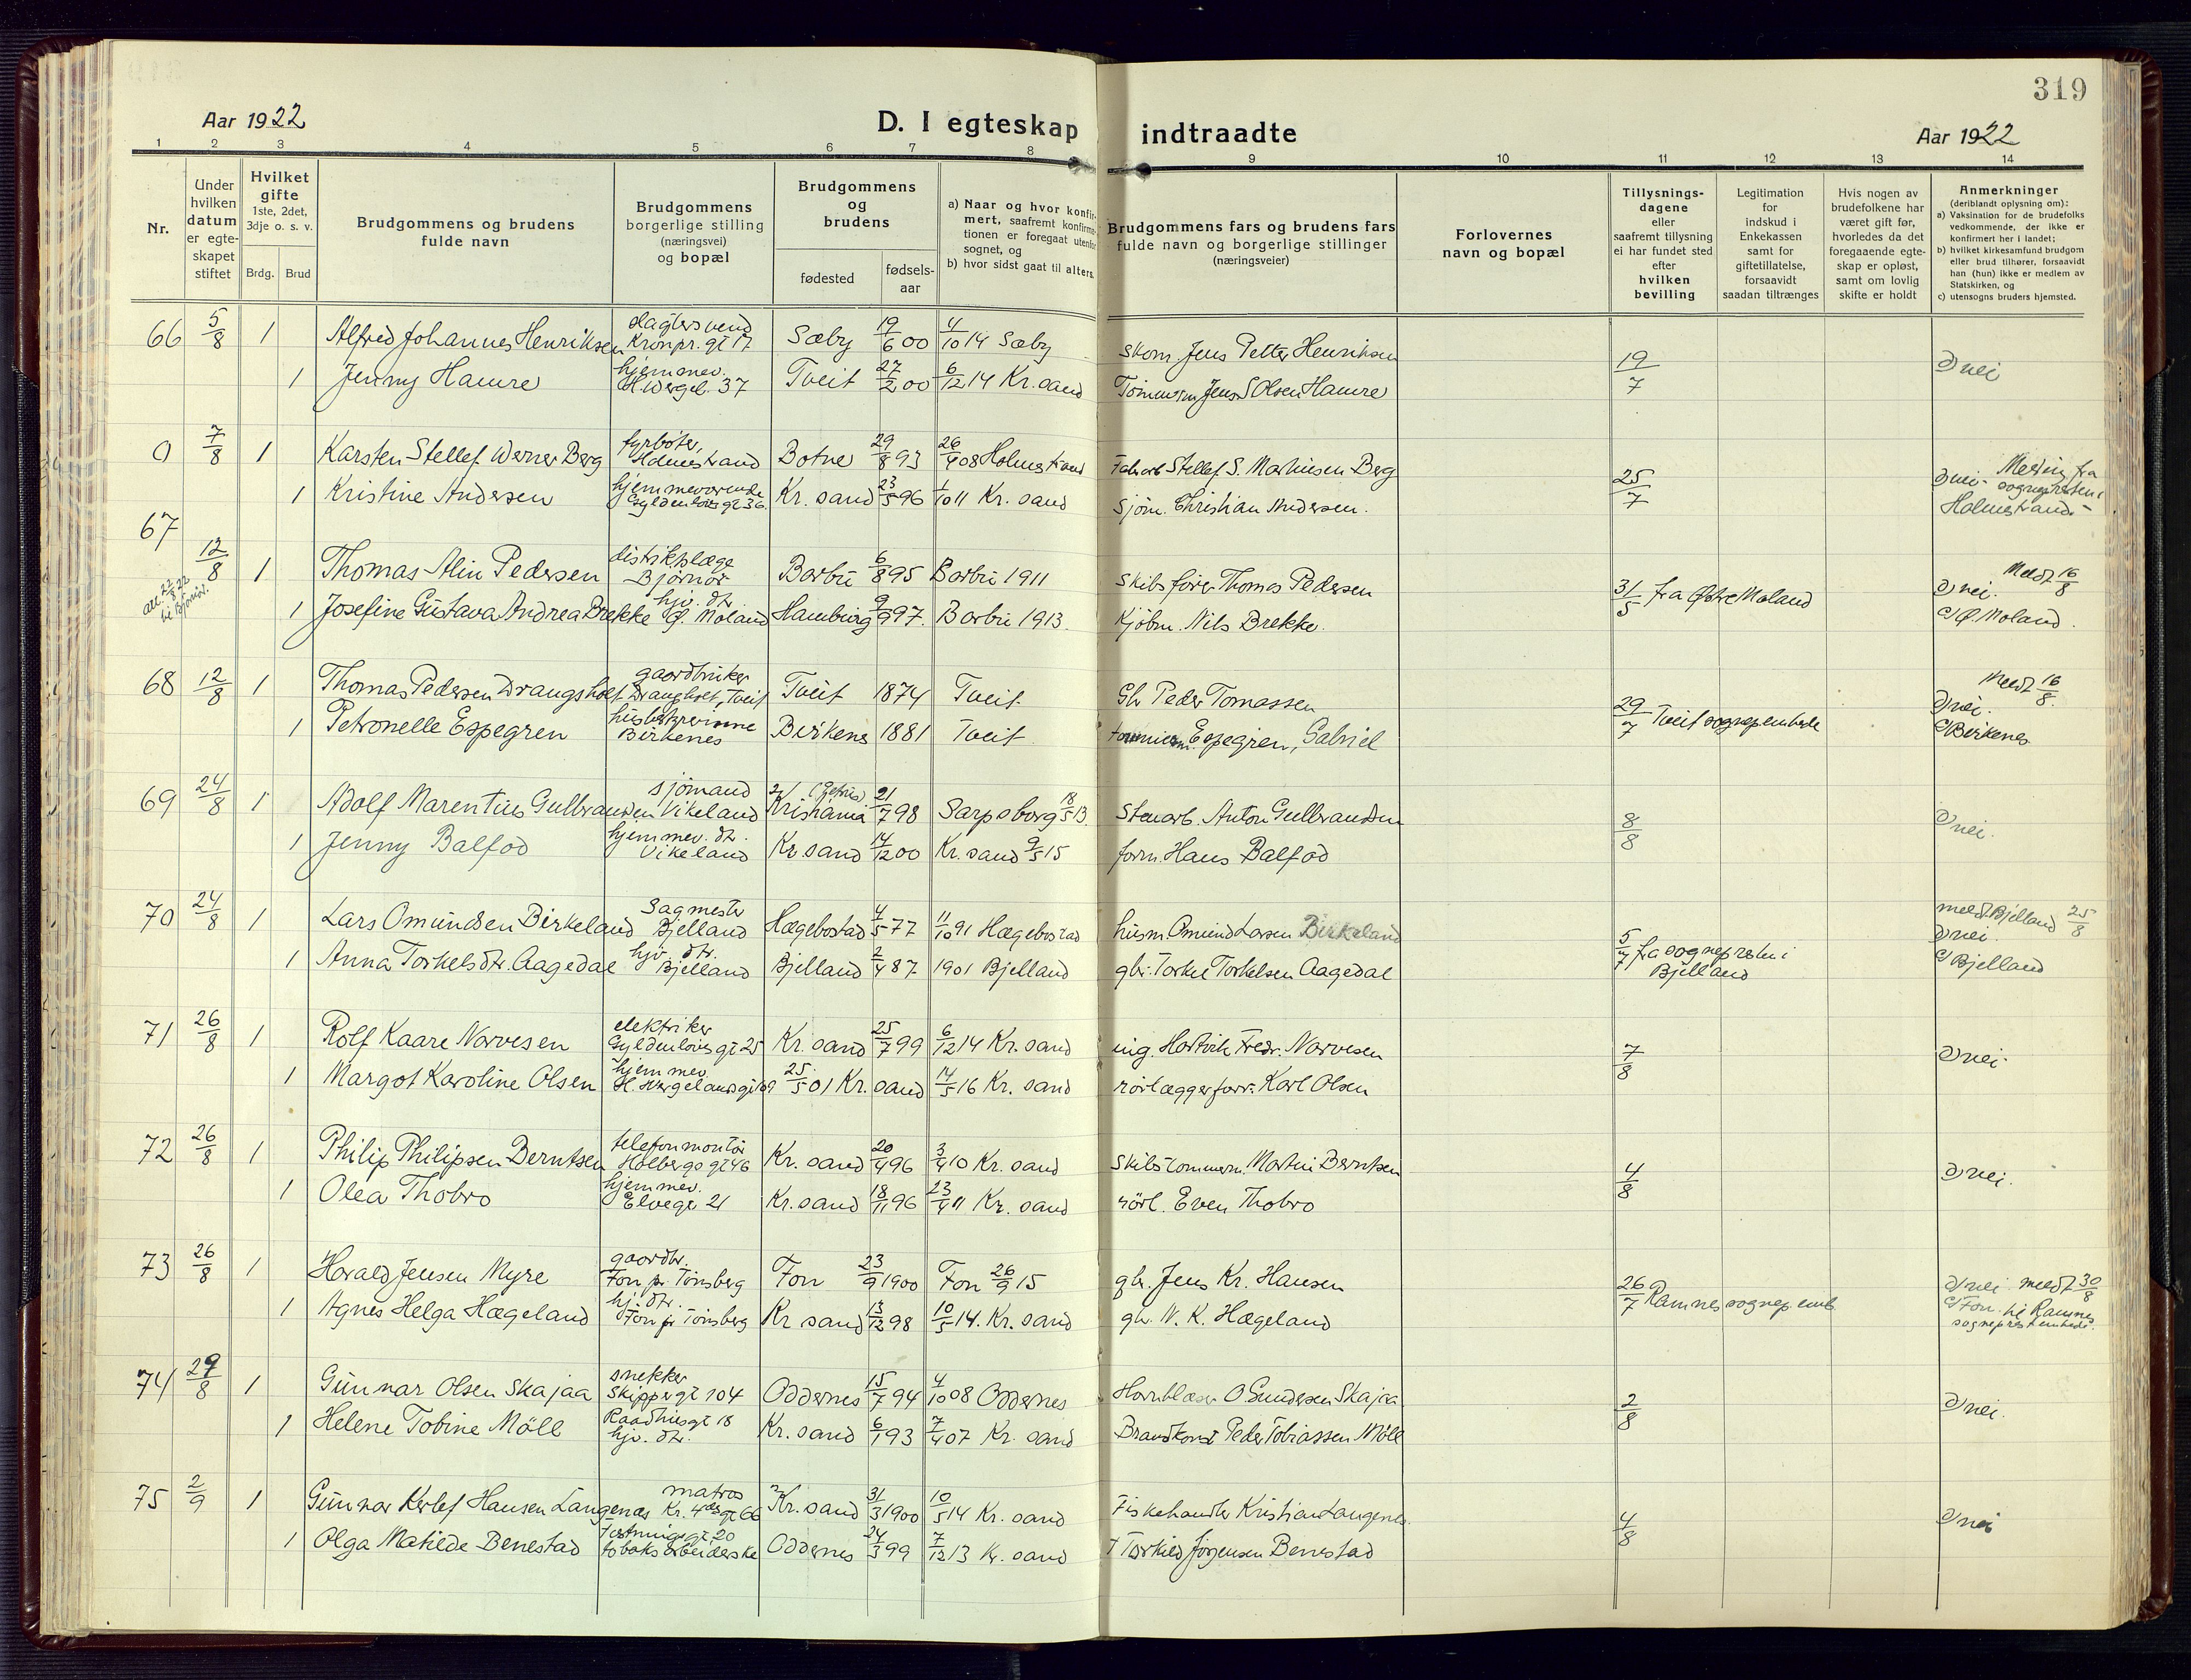 319
Aar 1922
D. I egteskap indtraadte
Aar 1922
1 2 3 4 5 6 7 8 9 10 11 12 13 14
Nr.
Under hvilken datum er egteskapet stiftet
Hvilket gifte 1ste, 2det, 3dje o. s. v.
Brdg. Brud
Brudgommens og brudens fulde navn
Brudgommens borgerlige stilling (næringsvei) og bopæl
Brudgommens og brudens
fødested
fødselsaar
a) Naar og hvor konfirmert, saafremt konfirmationen er foregaat utenfor sognet, og
b) hvor sidst gaat til alters.
Brudgommens fars og brudens fars fulde navn og borgerlige stillinger (næringsveier)
Forlovernes navn og bopæl
Tillysningsdagene eller saafremt tillysning ei har fundet sted efter hvilken bevilling
Legitimation for indskud i Enkekassen samt for giftetillatelse, forsaavidt saadan tiltrænges
Hvis nogen av brudefolkene har været gift før, hvorledes da det foregaaende egteskap er opløst, samt om lovlig skifte er holdt
Anmerkninger (deriblandt oplysning om):
a) Vaksination for de brudefolks vedkommende, der ikke er konfirmert her i landet;
b) hvilket kirkesamfund brudgom eller brud tilhører, forsaavidt han (hun) ikke er medlem av Statskirken, og
c) utensogns bruders hjemsted.
66 5/8 1 Alfred Johannes Henriksen slagtersvend Kronpr. gt 17 Sæby 19/6 00 4/10 14 Sæby skom. Jens Petter Henriksen 19/7 nei
1 Jenny Hamre hjemmev. H. Wergel. 37 Tveit 27/2 00 6/12 14 Kr.sand Tømmerm. Jens Olsen Hamre
0 7/8 1 Karsten Stellef Werner Berg fyrbøter, Holmestrand Botne 29/8 93 26/4 08 Holmestrand Fabarb Stellef S. Mathisen Berg 25/7 nei - Melding fra sognepresten i Holmestrand -
1 Kristine Andersen hjemmeværende Gyldenløves gt 36 Kr. sand 23/5 96 1/10 11 Kr. sand Sjøm. Christian Andersen.
67 12/8 1 Thomas Alin Pedersen distriktslæge Bjørnør Barbu 6/8 95 Barbu 1911 Skibsfører Thomas Pedersen 31/5 fra Østre Moland nei. Meldt 16/8
1 Josefine Gustava Andrea Brekke hjv. dtr. Ø. Moland Hamburg 9/9 97. Barbu 1913. Kjøbm. Nils Brekke. c) Ø. Moland.
68 12/8 1 Thomas Pedersen Drangsholt gaardbruker Drangsholt, Tveit Tveit 1874 Tveit Gbr Peder Tomassen 29/7 Tveit sogneprembede nei. Meldt 16/8.
1 Petronelle Espegren husbestyrerinne Birkenes Birkenes 1881 Tveit Espegren, Gabriel c) Birkenes
69 24/8 1 Adolf Marentius Gulbrandsen sjømand Vikeland Kristiania 21/7 98 Sarpsborg 18/5 13. Stenarb. Anton Gulbrandsen 8/8 nei.
1 Jenny Balfod hjemmev. dtr. Vikeland Kr.sand 14/12 00 Kr. sand 9/5 15 form. Hans Balfod
70 24/8 1 Lars Omundsen Birkeland Sagmester Bjelland Hægebostad 4/5 77 11/10 91 Hægebostad husm. Omund Larsen Birkeland 5/7 fra sognepresten i Bjelland meldt Bjelland 25/8 nei.
1 Anna Torkelsdtr. Aagedal hjv. dtr. Bjelland Bjelland 2/4 87 1901 Bjelland gbr. Torkel Torkelsen Aagedal c) Bjelland
71 26/8 1 Rolf Kaare Narvesen elektriker Gyldenløves gt 25 Kr. sand 25/7 99 6/12 14 Kr. sand ing. Hartvik Fredr. Narvesen 7/8 nei.
1 Margot Karoline Olsen hjemmev. H. Wergelandsgt 69 25/5 01 Kr. sand 14/5 16 Kr. sand rørlæggerform. Karl Olsen
72 26/8 1 Philip Philipsen Berntsen telefonmontør Holbergs gt 46 Kr. sand 20/4 96 3/4 10 Kr. sand Skibstømmerm. Martin Berntsen 4/8 nei.
1 Olea Thobro hjemmev. Elvegt 21 Kr. sand 18/11 96 23/4 11 Kr. sand rörl. Even Thobro
73 26/8 1 Harald Jensen Myre gaardbr. Fon pr. Tønsberg Fon 23/9 1900 Fon 26/9 15 gbr. Jens Kr. Hansen 26/7 Ramnes sognep.emb. nei meldt 30/8
1 Agnes Helga Hægeland hj. dtr. Fon pr Tönsberg Kr sand 13/12 98 10/5 14. Kr. sand gbr. N. K. Hægeland c) Fon. til Ramnes sogneprestembede.
74 29/8 1 Gunnar Olsen Skajaa snekker Skippergt 104 Oddernes 15/7 94 4/10 08 Oddernes Hornblæser O. Gundersen Skajaa 2/8 nei.
1 Helene Tobine Möll Raadhusgt 18 hjv. dtr. Kr. sand 6/1 93 7/4 07 Kr. sand Brandkonst Peder Tobiassen Möll
75 2/9 1 Gunnar Kerlef Hansen Langenes matros Kr. 4des gt 66 Kr. sand 31/3 1900 10/5 14 Kr. sand Fiskehandler Kristian Langenes. 4/8 nei
1 Olga Matilde Benestad Festningsgt 20 tobaksarbeiderske Oddernes 24/3 99 7/12 13 Kr. sand Torkild Jørgensen Benestad